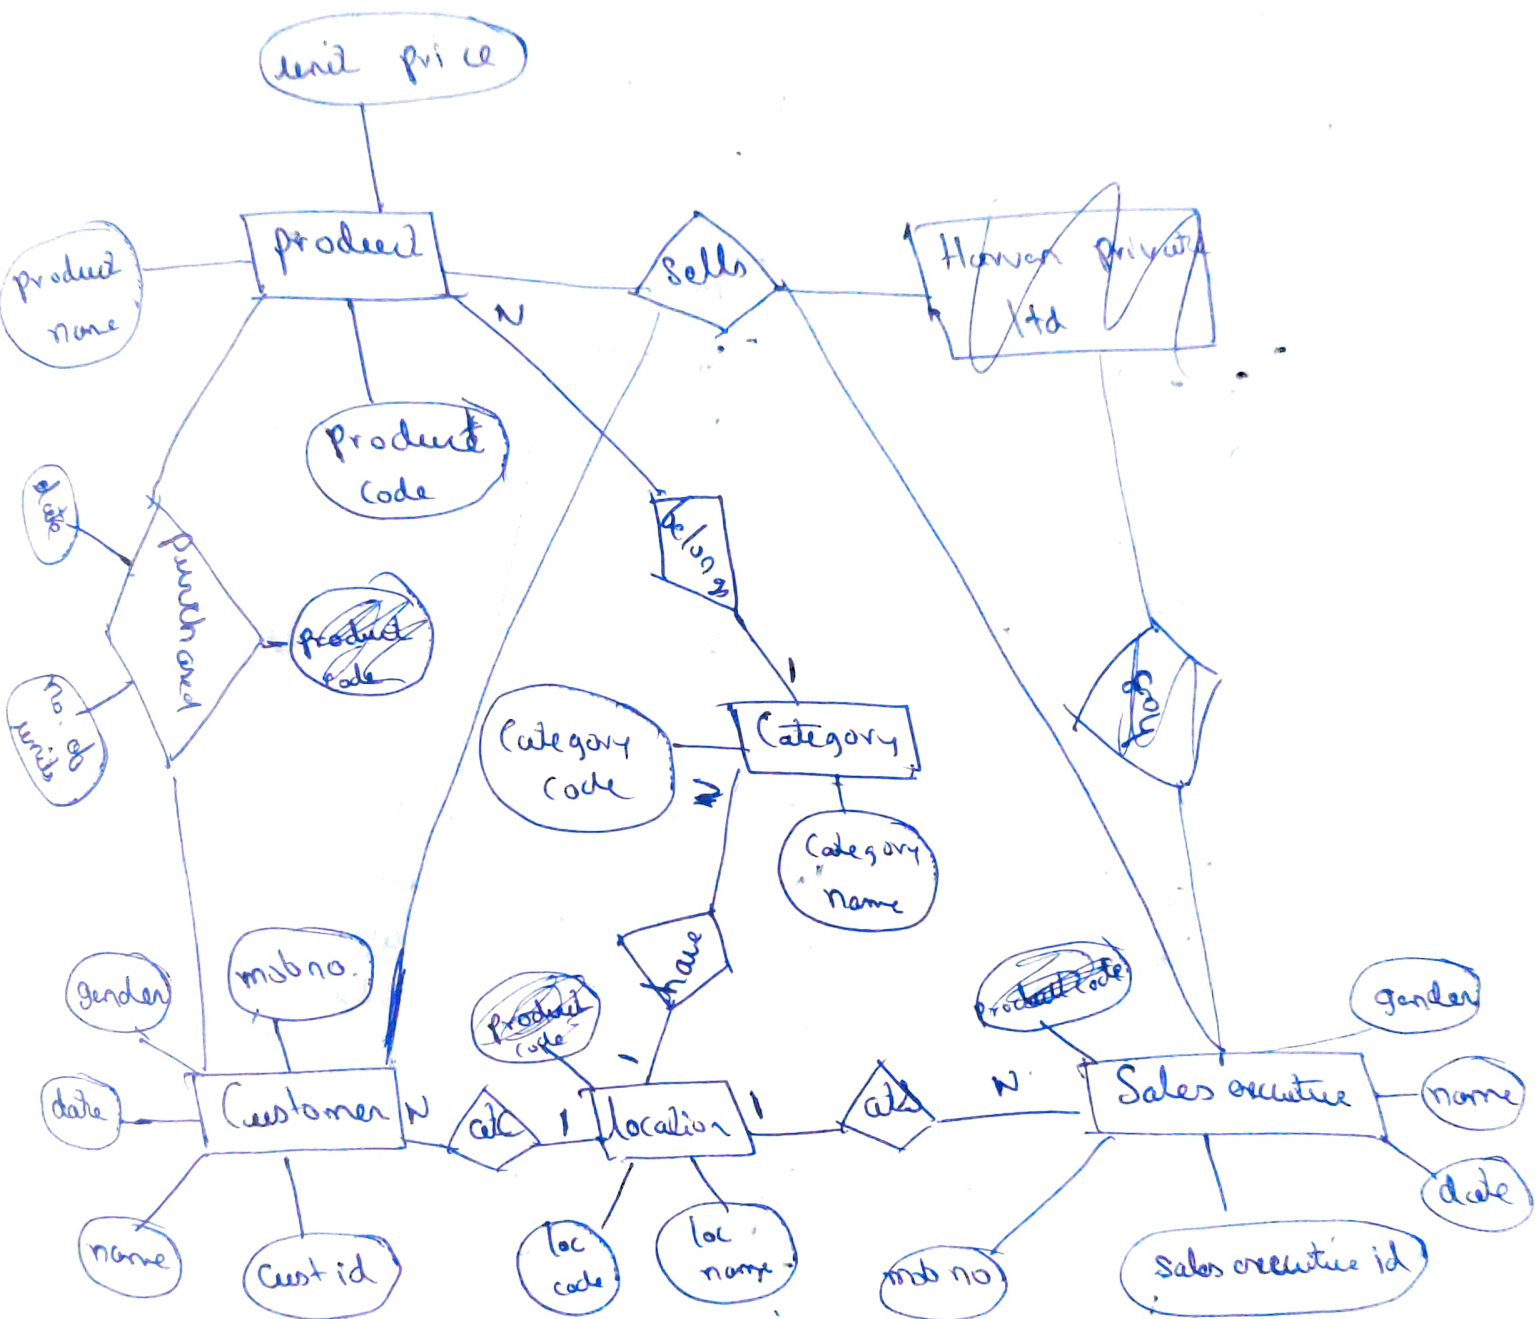 unit price
product
sells
Harvan private
ltd
product
name
N
product
code
date
purchased
belongs
product
code
no. of
units
1
Category
code
Category
N
Category
name
have
gender
mob no.
product
code
product code
gender
date
Customer
N
atc
1
1
location
1
ats
N
Sales executive
name
date
name
cust id
loc
code
loc
name
mob no
Sales executive id